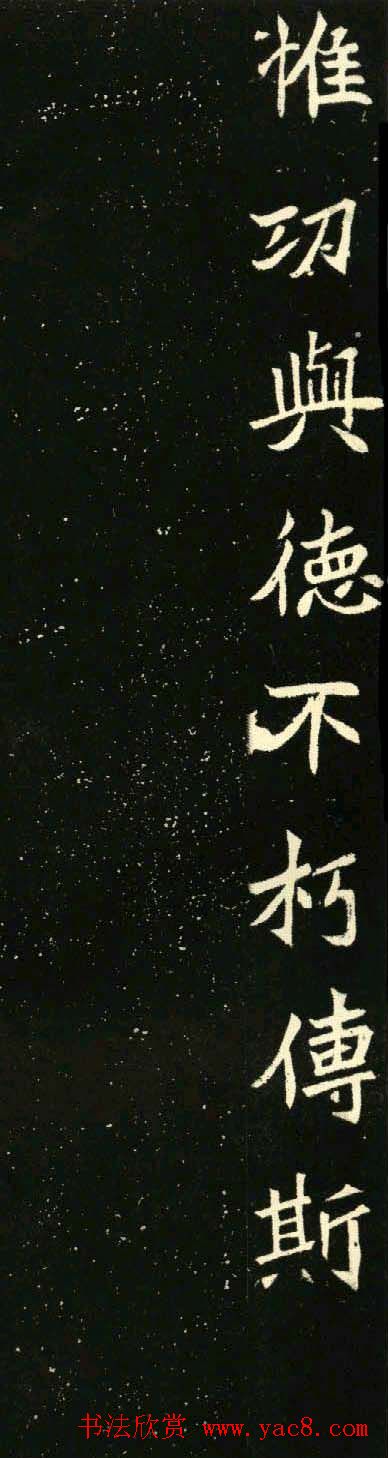 惟功與德不朽傳斯
书法欣赏 www.yac8.com